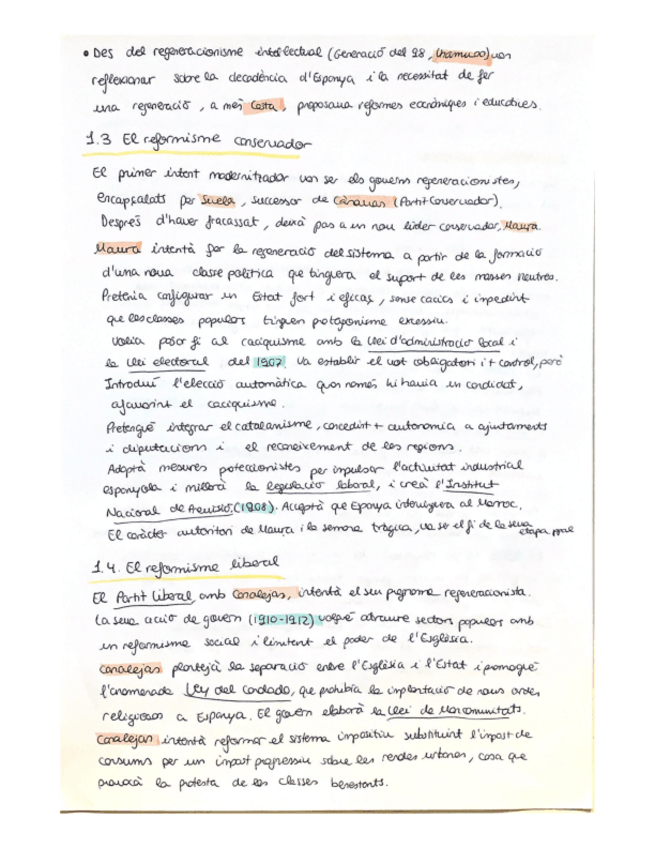 • Des del regeneracionisme intel·lectual (Generació del 98, Unamuno) van
reflexionar sobre la decadència d'Espanya i la necessitat de fer
una regeneració, a més Costa, proposava reformes econòmiques i educatives.
1.3 El reformisme conservador
El primer intent modernitzador van ser els governs regeneracionistes,
encapçalats per Silvela, successor de Cánovas (Partit Conservador).
Després d'haver fracassat, deixà pas a un nou líder conservador, Maura.
Maura intentà fer la regeneració del sistema a partir de la formació
d'una nova classe política que tinguera el suport de les masses neutres.
Pretenia configurar un Estat fort i eficaç, sense cacics i impedint
que les classes populars tinguen protagonisme excessiu.
Volia posar fi al caciquisme amb la Llei d'administració local i
la Llei electoral del 1907. Va establir el vot obligatori i + control, però
Introduí l'elecció automàtica quan només hi havia un candidat,
afavorint el caciquisme.
Pretengué integrar el catalanisme, concedint + autonomia a ajuntaments
i diputacions i el reconeixement de les regions.
Adoptà mesures proteccionistes per impulsar l'activitat industrial
espanyola i millorà la legislació laboral, i creà l'Institut
Nacional de Previsió (1908). Acceptà que Espanya intervinguera al Marroc.
El caràcter autoritari de Maura i la semana tràgica, va ser el fi de la seua
etapa
1.4. El reformisme liberal
El Partit Liberal, amb Canalejas, intentà el seu programa regeneracionista.
La seua acció de govern (1910-1912) volgué atraure sectors populars amb
un reformisme social i limitant el poder de l'Església.
Canalejas plantejà la separació entre l'Església i l'Estat i promogué
l'anomenada Ley del Candado, que prohibia la implantació de nous ordes
religiosos a Espanya. El govern elaborà la Llei de Mancomunitats.
Canalejas intentà reformar el sistema impositiu substituint l'impost de
consums per un impost progressiu sobre les rendes urbanes, cosa que
provocà la protesta de les classes benestants.